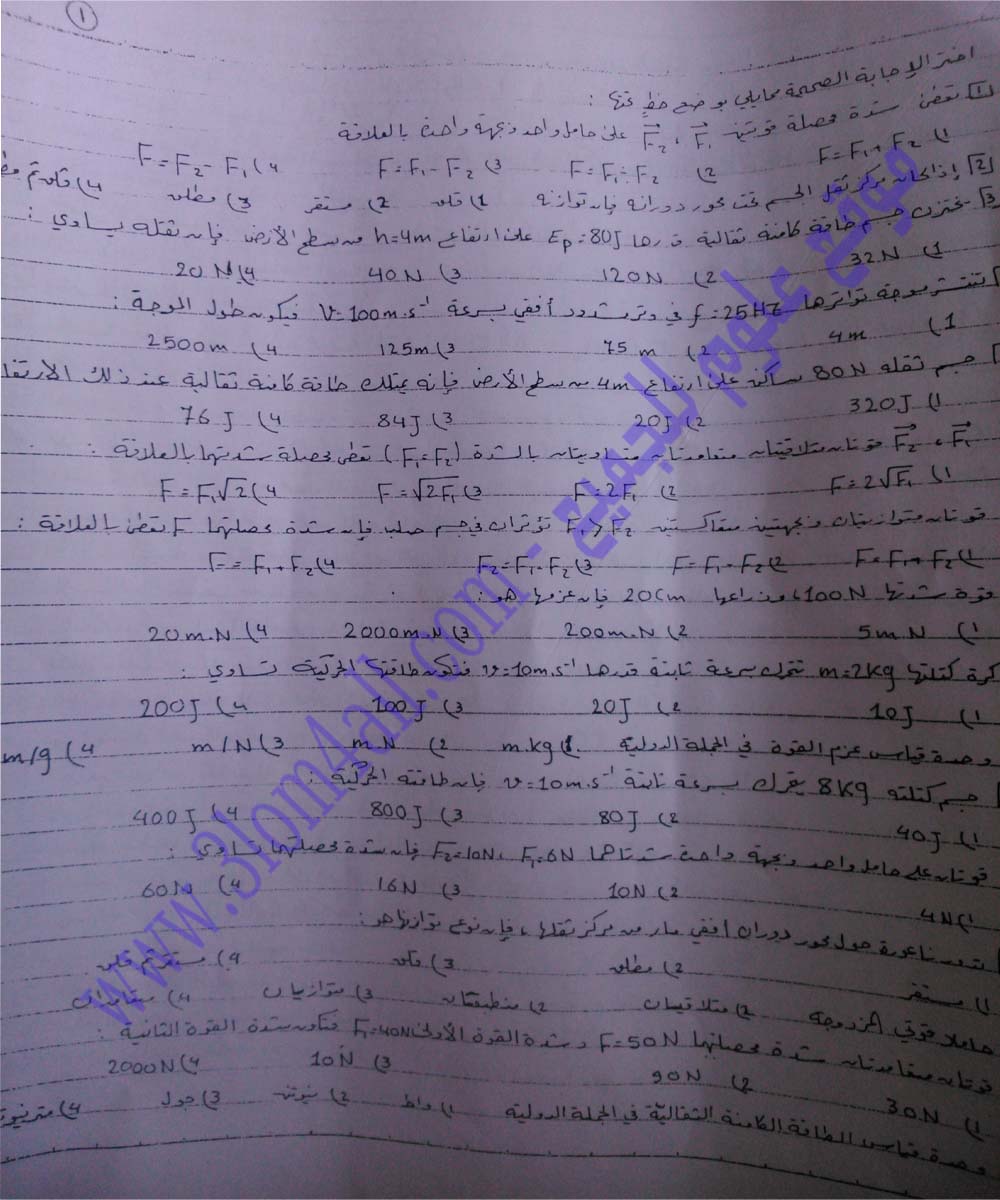 1
اختر الإجابة الصحيحة مما يلي بوضع خط تحتها :
1 تعطى شدة محصلة قوتين F₁ ، F₂ على حامل واحد وبجهة واحدة بالعلاقة
1) F=F₁+F₂ 2) F=F₁÷F₂ 3) F=F₁-F₂ 4) F=F₂-F₁
2 إذا كان مركز ثقل الجسم تحت محور دورانه فإن توازنه 1) قلق 2) مستقر 3) مطلق 4) قلق ثم
3 يختزن جسم طاقة كامنة ثقالية قدرها Eₚ=80J على ارتفاع h=4m من سطح الأرض فإن ثقله يساوي :
1) 32N 2) 120N 3) 40N 4) 20N
تنتشر موجة تواترها f=25HZ في وتر مشدود أفقي بسرعة v=100m.s⁻¹ فيكون طول الموجة :
1) 4m 2) 75m 3) 125m 4) 2500m
جسم ثقله 80N ساكن على ارتفاع 4m من سطح الأرض فإنه يمتلك طاقة كامنة ثقالية عند ذلك الارتفا
1) 320J 2) 20J 3) 84J 4) 76J
F₁ ، F₂ قوتان متلاقيتان متعامدتان متساويتان بالشدة (F₁=F₂) تعطى محصلة شدتيهما بالعلاقة :
1) F=2√F₁ 2) F=2F₁ 3) F=√2F₁ 4) F=F₁√2
قوتان متوازيتان وبجهتين متعاكستين F₁>F₂ تؤثران في جسم صلب فإن شدة محصلتهما F تعطى بالعلاقة :
1) F=F₁+F₂ 2) F=F₁-F₂ 3) F₂=F₁-F₂ 4) F=F₁+F₂
قوة شدتها 100N، وذراعها 20cm فإن عزمها هو :
1) 5m.N 2) 200m.N 3) 2000m.N 4) 20m.N
كرة كتلتها m=2kg تتحرك بسرعة ثابتة قدرها v=10m.s⁻¹ فتكون طاقتها الحركية تساوي :
1) 10J 2) 20J 3) 100J 4) 200J
وحدة قياس عزم القوة في الجملة الدولية 1) m.kg 2) m.N 3) m/N 4) m/g
جسم كتلته 8Kg يتحرك بسرعة ثابتة v=10m.s⁻¹ فإن طاقته الحركية :
1) 40J 2) 80J 3) 800J 4) 400J
قوتان على حامل واحد وبجهة واحدة شدتاهما F₁=6N ، F₂=10N فإن شدة محصلتهما تساوي :
1) 4N 2) 10N 3) 16N 4) 60N
تدور ناعورة حول محور دوران أفقي مار من مركز ثقلها ، فإن نوع توازنها هو :
1) مستقر 2) مطلق 3) قلق 4) مستقر ثم قلق
حاملا قوتي المزدوجة 2) متلاقيان 2) منطبقتان 3) متوازيان 4) متعامدان
قوتان متعامدتان شدة محصلتهما F=50N وشدة القوة الأولى F₁=40N فتكون شدة القوة الثانية :
1) 30N 2) 90N 3) 10N 4) 2000N
وحدة قياس الطاقة الكامنة الثقالية في الجملة الدولية 1) واط 2) نيوتن 3) جول 4) متر نيوتن
موقع علوم للجميع - www.3lom4all.com